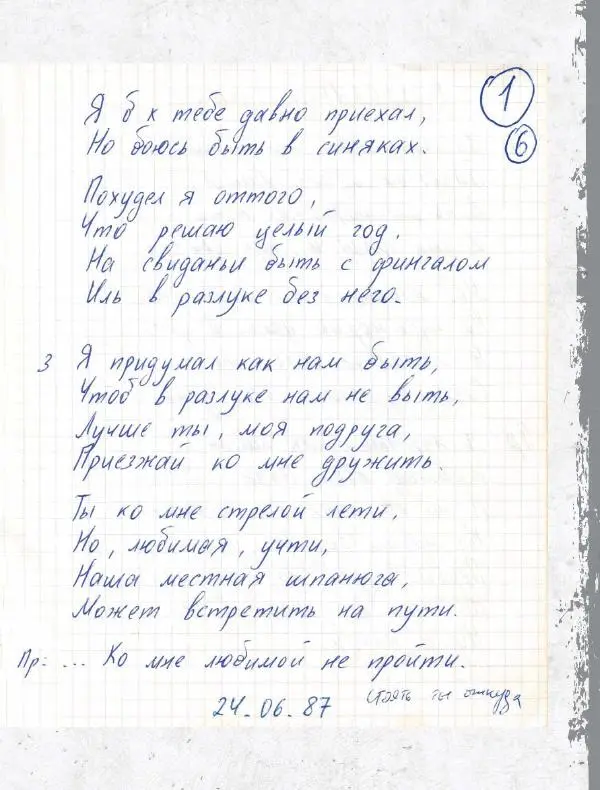 1
6
Я б к тебе давно приехал,
Но боюсь быть в синяках.
Похудел я оттого,
Что решаю целый год,
На свиданьи быть с фингалом
Иль в разлуке без него.
3 Я придумал как нам быть,
Чтоб в разлуке нам не выть,
Лучше ты, моя подруга,
Приезжай ко мне дружить.
Ты ко мне стрелой лети,
Но, любимая, учти,
Наша местная шпанюга,
Может встретить на пути.
Пр: ... Ко мне любимой не пройти.
24.06.87 стоять ты откуда